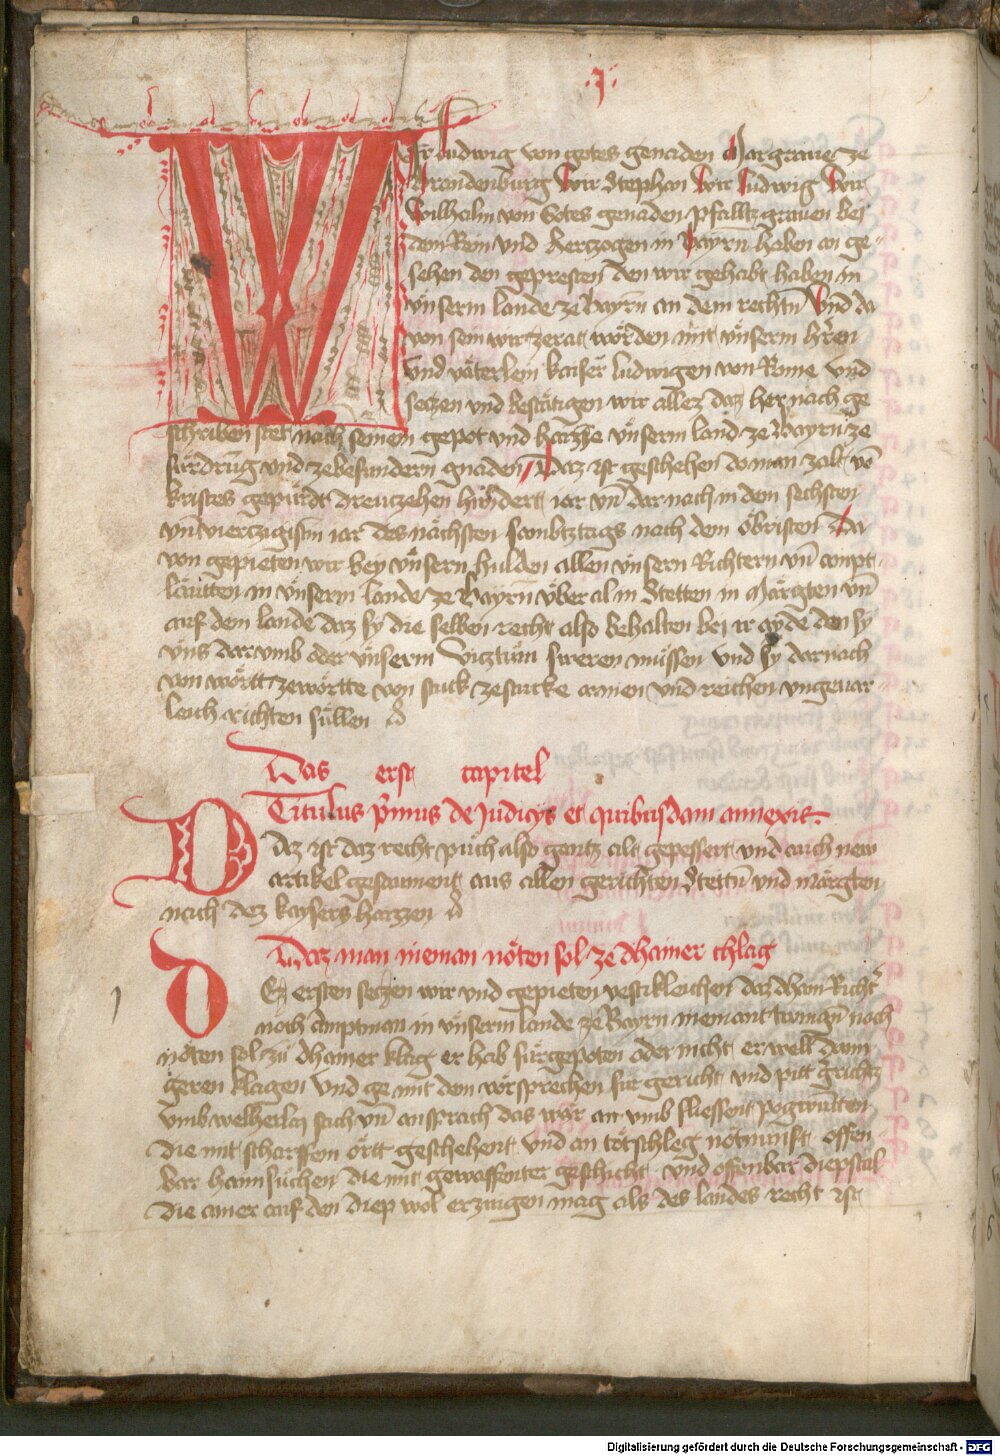 .j.
WIr Ludwig von gotes genaden Margraue ze
Brandenburg Wir Stephan Wir Ludwig Wir
Wilhalm von Gotes genaden Pfalltzgrauen bei
dem Rein vnd Hertzogen in Bayrn̄ haben an ge-
sehen den gepresten den wir gehabt haben in
vnserm lande ze Bayrn an dem rechtn̄ Vnd da
von sein wir ze rat worden mit vnserm hr̄en
vnd väterlein kaiser ludwigen von Rome vnd
seczen vnd bestätigen wir allez daz her nach ge
schriben stet nach seinem gepot vnd haizze vnserm land ze Bayrn ze
fürdrung vnd ze besundern gnaden Daz ist geschehen do man zalt vō
kristes gepürdt dreuczehen hundert iar vn̄ darnach in dem sechsten
vn vierczigistm iar des nächsten sambtztags nach dem öbristen Da
von gepieten wir bey vnsern hulden allen vnsern Richtern vn̄ ampt
läutten in vnserm lande ze Bayrn über al in Stetten in Märgten vn̄
auf dem lande daz sy die selben recht also behalten bei ir ayde den sy
vns darvmb oder vnserm Viztum sweren müssen vnd sy darnach
von wortt ze wortte von stuck ze stucke armen vnd reichen vngeuar-
leich richten süllen
Das erst capitel
Titulus p̄mus de Judicys et quibusdam annexis.
Daz ist daz recht puch also gantz alt gepessert vnd auch new
artikel gesament aus allen gerichten Stettn̄ vnd märgten
nach dez kaysers haizzen
Daz man nieman nöten sol ze dhainer chlag
DEz ersten seczen wir vnd gepieten vestikleichen daz dhain Richt̄
noch Amptman in vnserm lande ze Bayrn niemant twingn̄ noch
nöten sol zu dhainer klag er hab fürgepoten oder nicht er well dann
geren klagen Vnd ge mit dem vorsprechen für gericht vnd pitt gerichtz
vmb welherlay sach vn̄ ansprach das wär an vmb fliessent pogwunten
die mit scharffem ortt geschehent vnd an totschleg notnunft offen
bar haimsuchen die mit gewaffenter geschicht vnd offenbar diepstal
die ainer auf den diep wol erzeugen mag als des landes recht ist
Digitalisierung gefördert durch die Deutsche Forschungsgemeinschaft - DFG